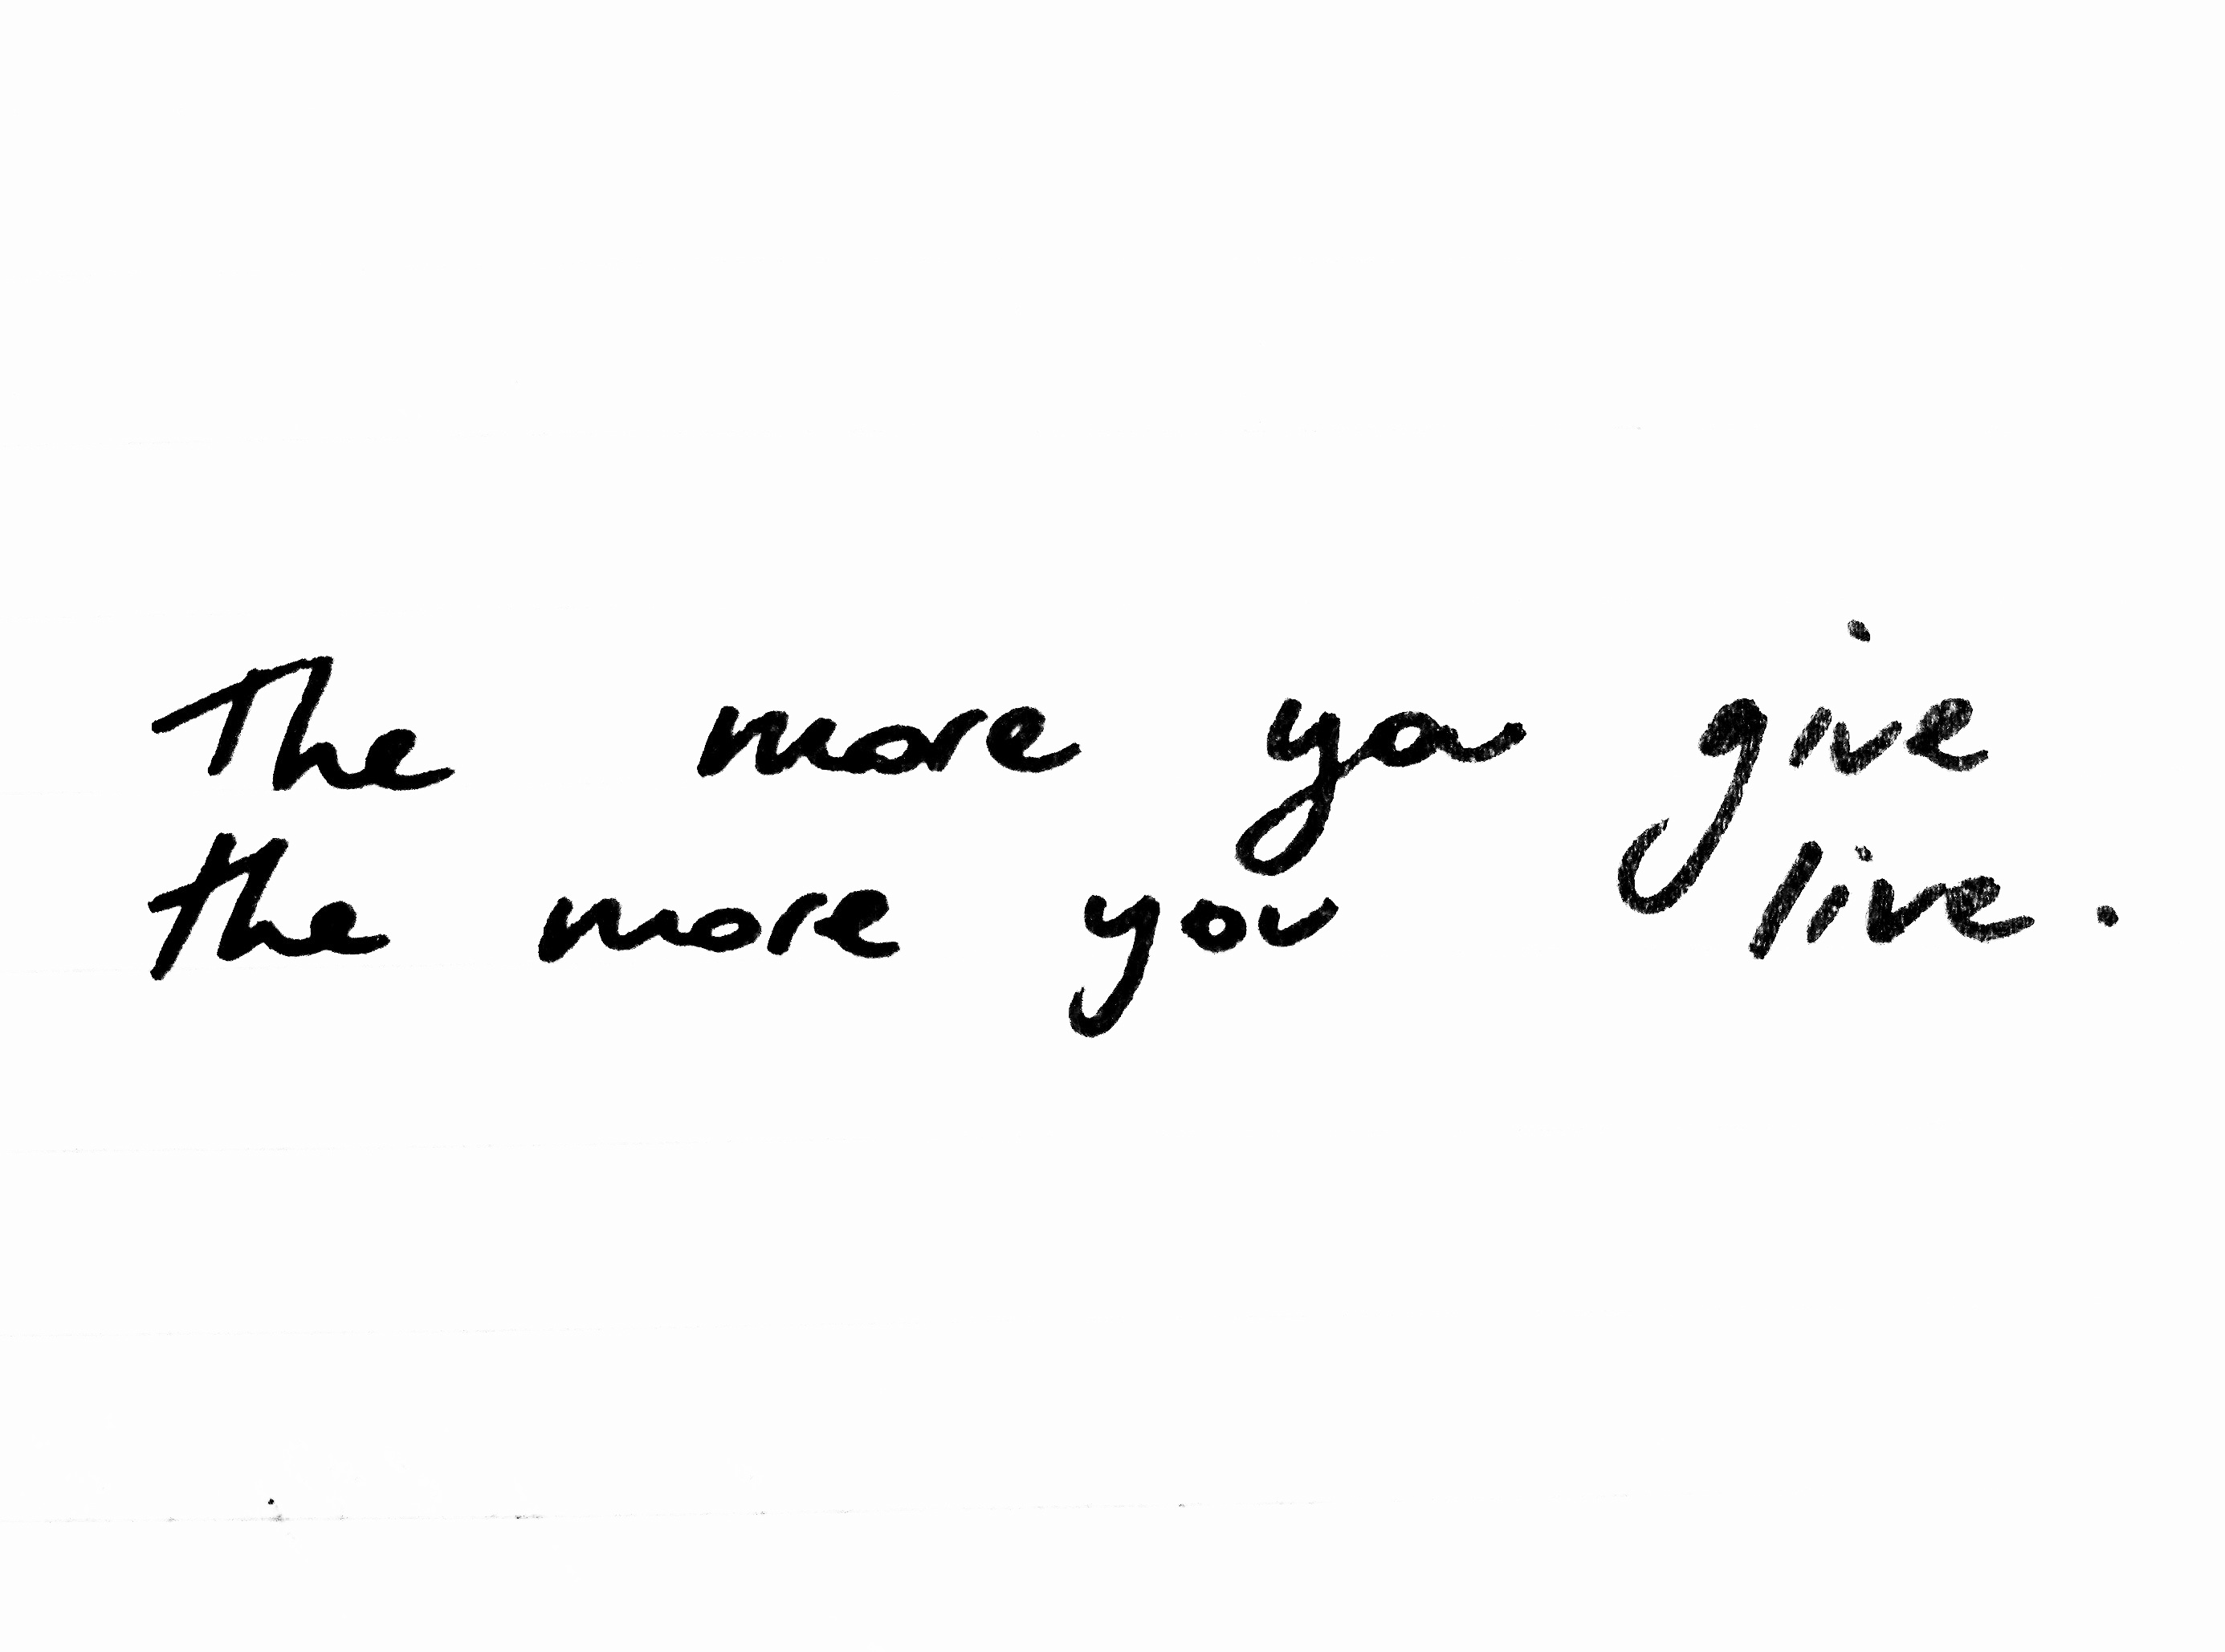 The more you give
the more you live.